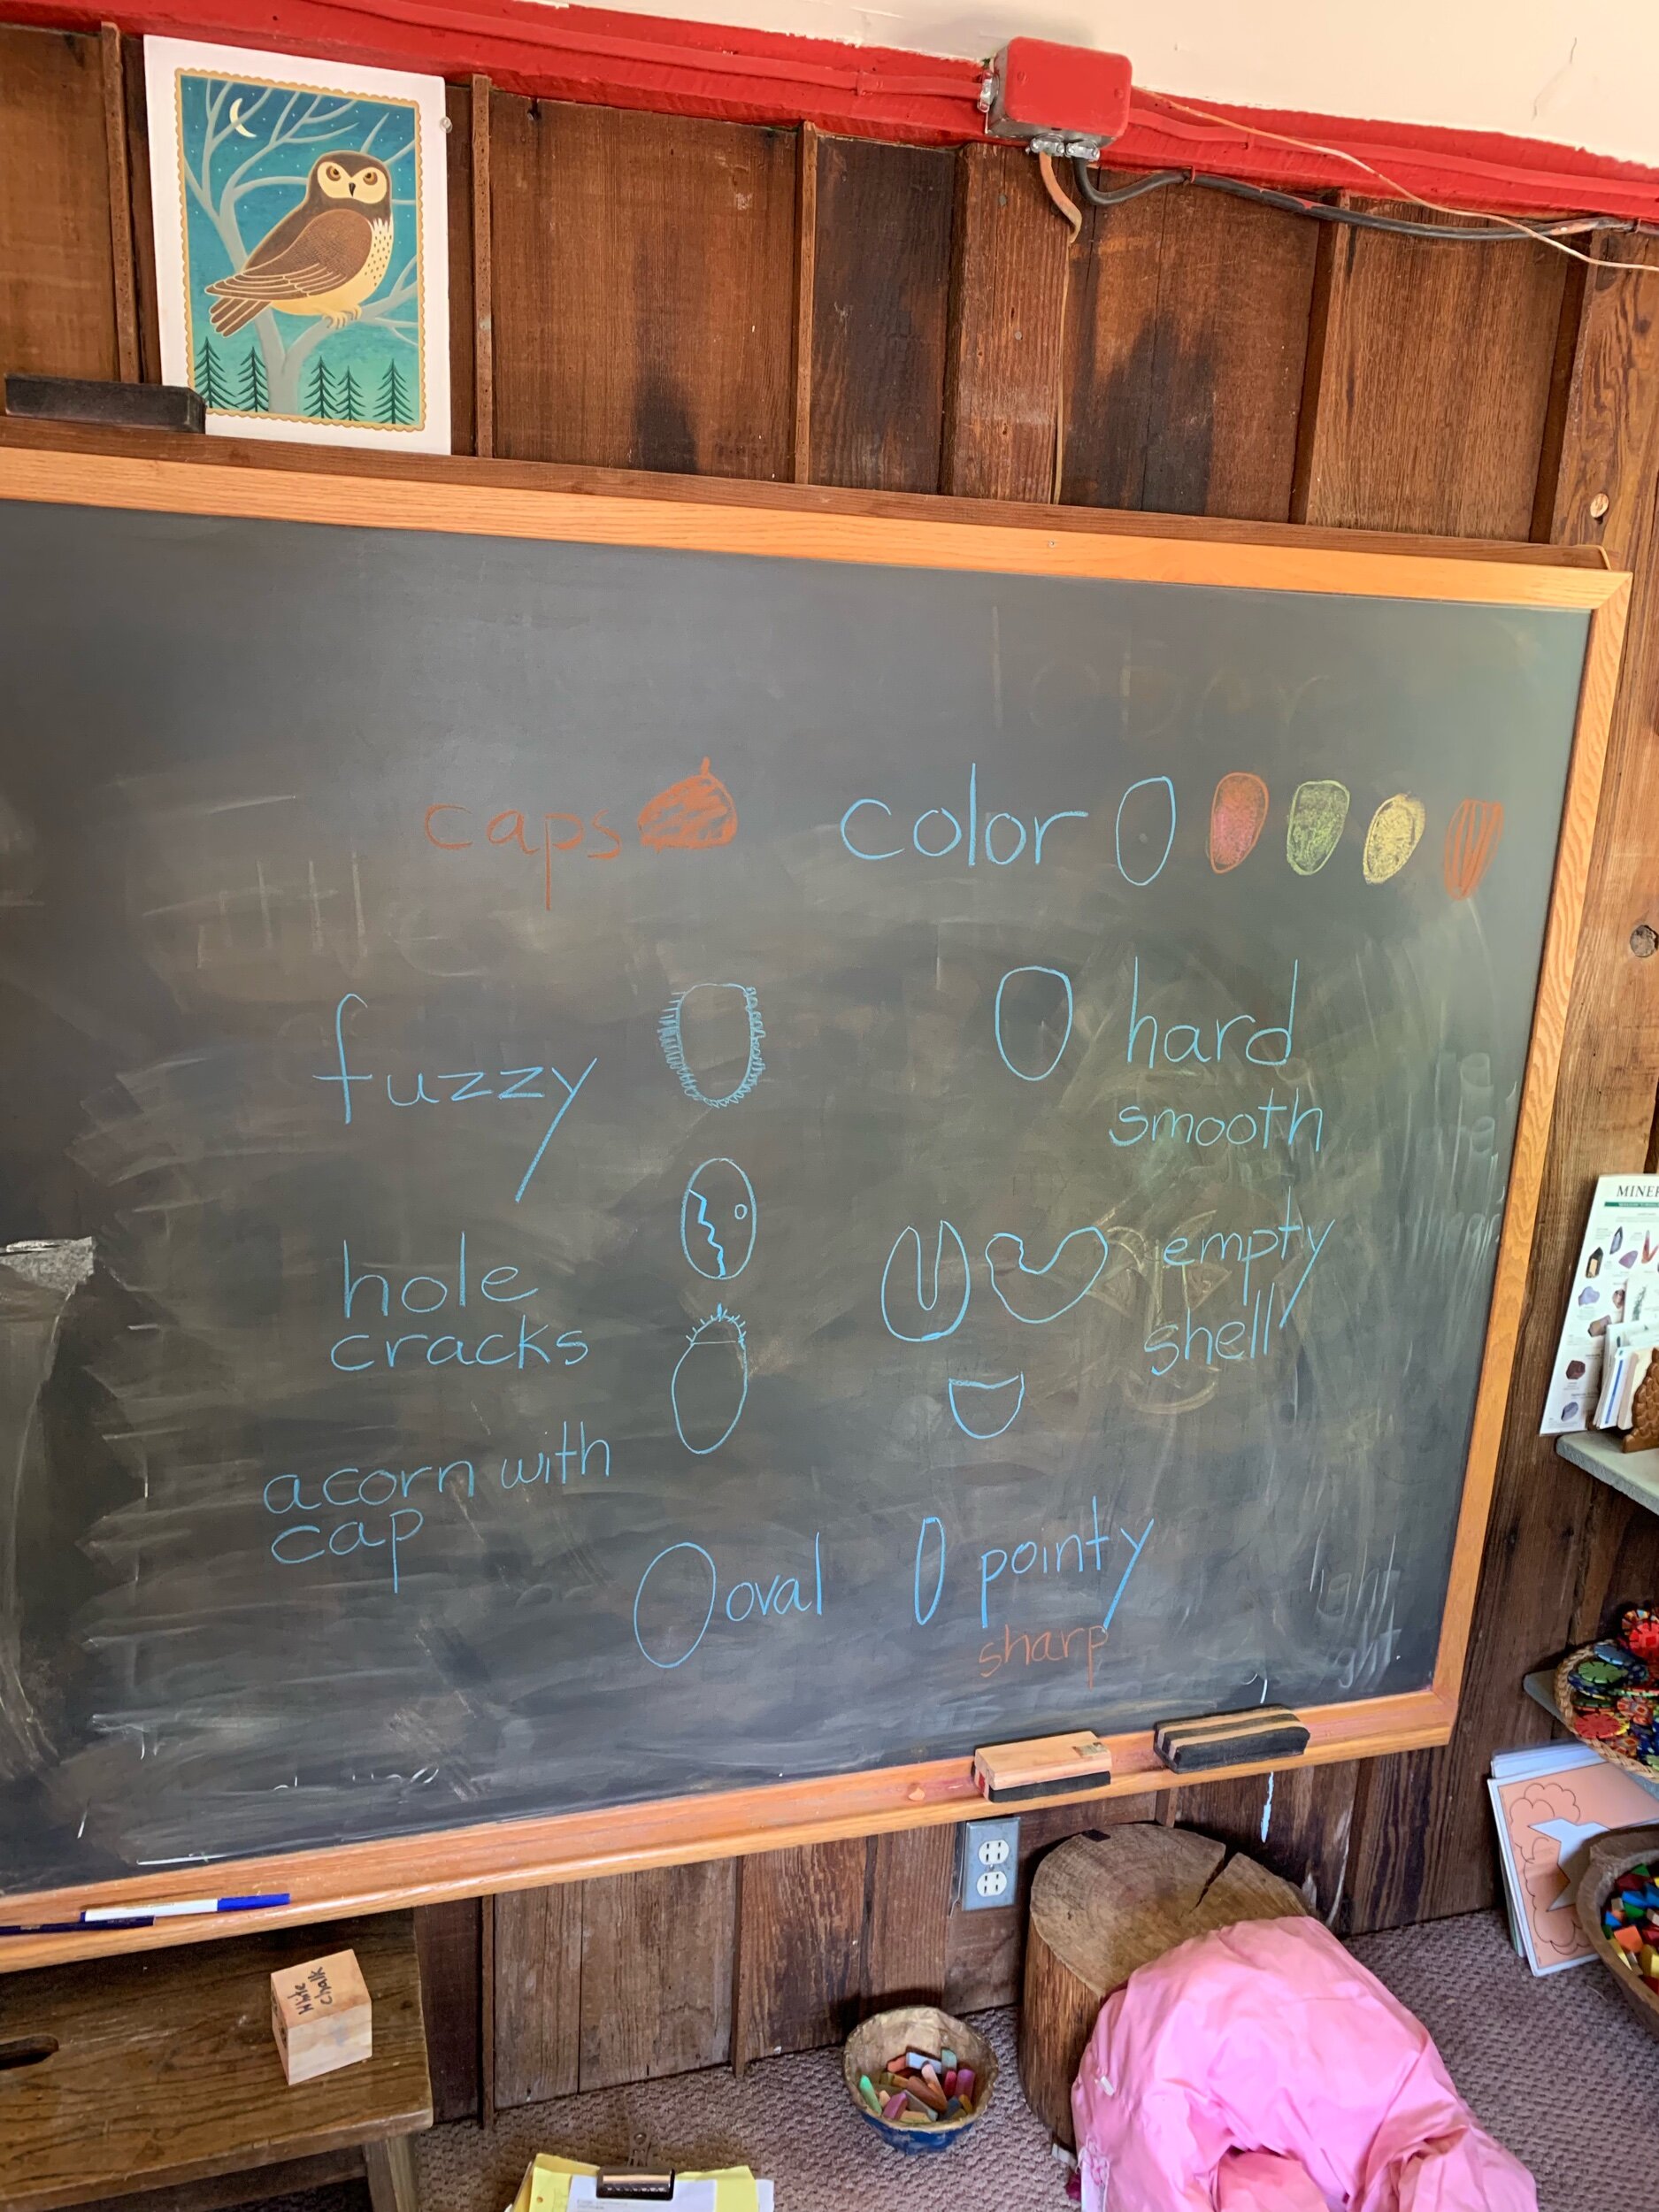 caps
color
fuzzy
hard
smooth
hole
cracks
empty
shell
acorn with
cap
oval
pointy
sharp
light
White
chalk